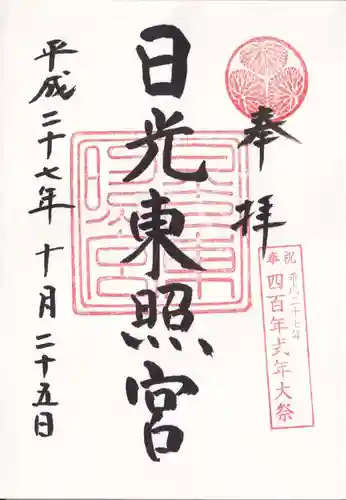 奉拝
奉祝
平成二十七年
四百年式年大祭
日光東照宮
平成二十七年十月二十五日